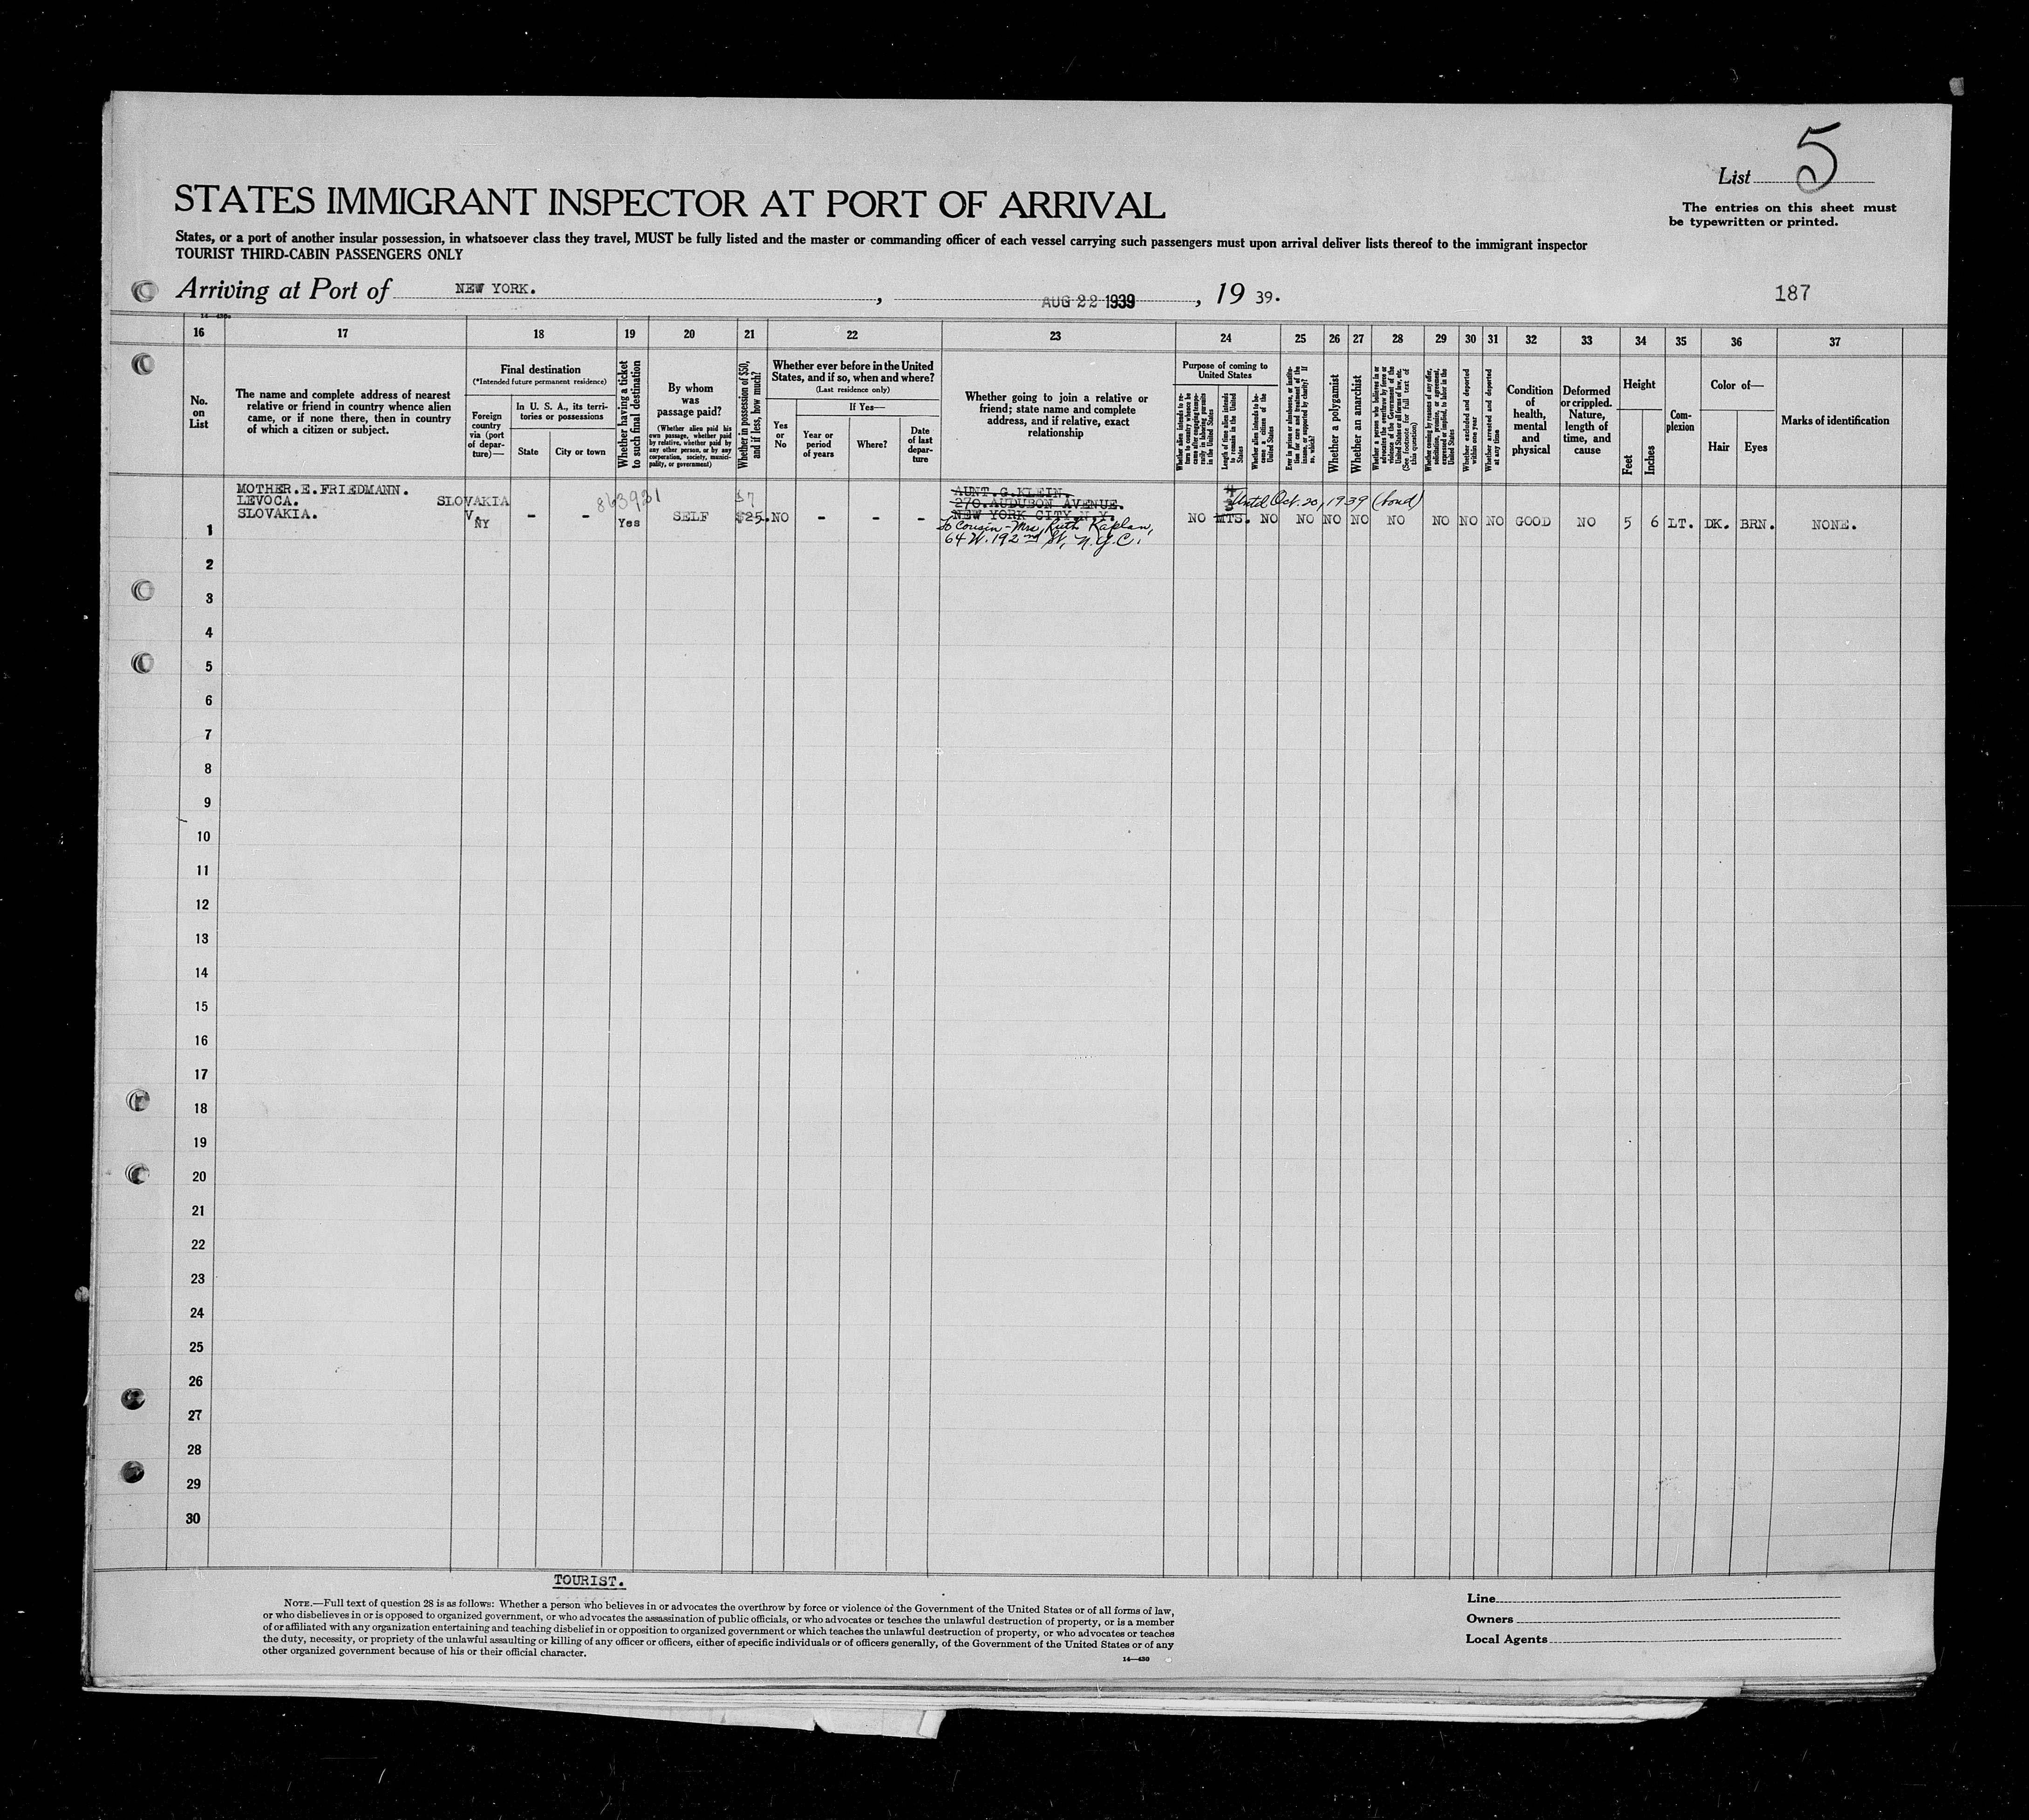 List 5
STATES IMMIGRANT INSPECTOR AT PORT OF ARRIVAL
The entries on this sheet must
be typewritten or printed.
States, or a port of another insular possession, in whatsoever class they travel, MUST be fully listed and the master or commanding officer of each vessel carrying such passengers must upon arrival deliver lists thereof to the immigrant inspector
TOURIST THIRD-CABIN PASSENGERS ONLY
Arriving at Port of NEW YORK. , AUG 22 1939 , 19 39.
187
16 17 18 19 20 21 22 23 24 25 26 27 28 29 30 31 32 33 34 35 36 37
No.
on
List
The name and complete address of nearest
relative or friend in country whence alien
came, or if none there, then in country
of which a citizen or subject.
Final destination
(*Intended future permanent residence)
Foreign
country
via (port
of depar-
ture)—
In U. S. A., its terri-
tories or possessions
State
City or town
Whether having a ticket
to such final destination
By whom
was
passage paid?
(Whether alien paid his
own passage, whether paid
by relative, whether paid by
any other person, or by any
corporation, society, munici-
pality, or government)
Whether in possession of $50,
and if less, how much?
Whether ever before in the United
States, and if so, when and where?
(Last residence only)
Yes
or
No
If Yes—
Year or
period
of years
Where?
Date
of last
depar-
ture
Whether going to join a relative or
friend; state name and complete
address, and if relative, exact
relationship
Purpose of coming to
United States
Whether alien intends to re-
turn to country whence he
came after engaging tempo-
rarily in laboring pursuits
in the United States
Length of time alien intends
to remain in the United
States
Whether alien intends to be-
come a citizen of the
United States
Ever in prison or almshouse, or institu-
tion for care and treatment of the
insane, or supported by charity? If
so, which?
Whether a polygamist
Whether an anarchist
Whether a person who believes in or
advocates the overthrow by force or
violence of the Government of the
United States or all forms of law, etc.
(See footnote for full text of
this question)
Whether coming by reason of any offer,
solicitation, promise, or agreement,
expressed or implied, to labor in the
United States
Whether excluded and deported
within one year
Whether arrested and deported
at any time
Condition
of
health,
mental
and
physical
Deformed
or crippled.
Nature,
length of
time, and
cause
Height
Feet
Inches
Com-
plexion
Color of—
Hair
Eyes
Marks of identification
MOTHER.E.FRIEDMANN.
LEVOCA.
SLOVAKIA.
SLOVAKIA
V.
NY
- -
863931
Yes
SELF
$25.
NO - - -
AUNT.G.KLEIN.
270.AUDUBON AVENUE.
NEW YORK CITY.N.Y.
to cousin-Mrs. Ruth Kaplan,
64 W. 192nd St, N.Y.C.
Until Oct. 20, 1939 (bond)
NO MTS. NO NO NO NO NO NO NO NO GOOD NO 5 6 LT. DK. BRN. NONE.
1
2
3
4
5
6
7
8
9
10
11
12
13
14
15
16
17
18
19
20
21
22
23
24
25
26
27
28
29
30
TOURIST.
NOTE.—Full text of question 28 is as follows: Whether a person who believes in or advocates the overthrow by force or violence of the Government of the United States or of all forms of law,
or who disbelieves in or is opposed to organized government, or who advocates the assassination of public officials, or who advocates or teaches the unlawful destruction of property, or is a member
of or affiliated with any organization entertaining and teaching disbelief in or opposition to organized government or which teaches the unlawful destruction of property, or who advocates or teaches
the duty, necessity, or propriety of the unlawful assaulting or killing of any officer or officers, either of specific individuals or of officers generally, of the Government of the United States or of any
other organized government because of his or their official character.
14—430
Line
Owners
Local Agents